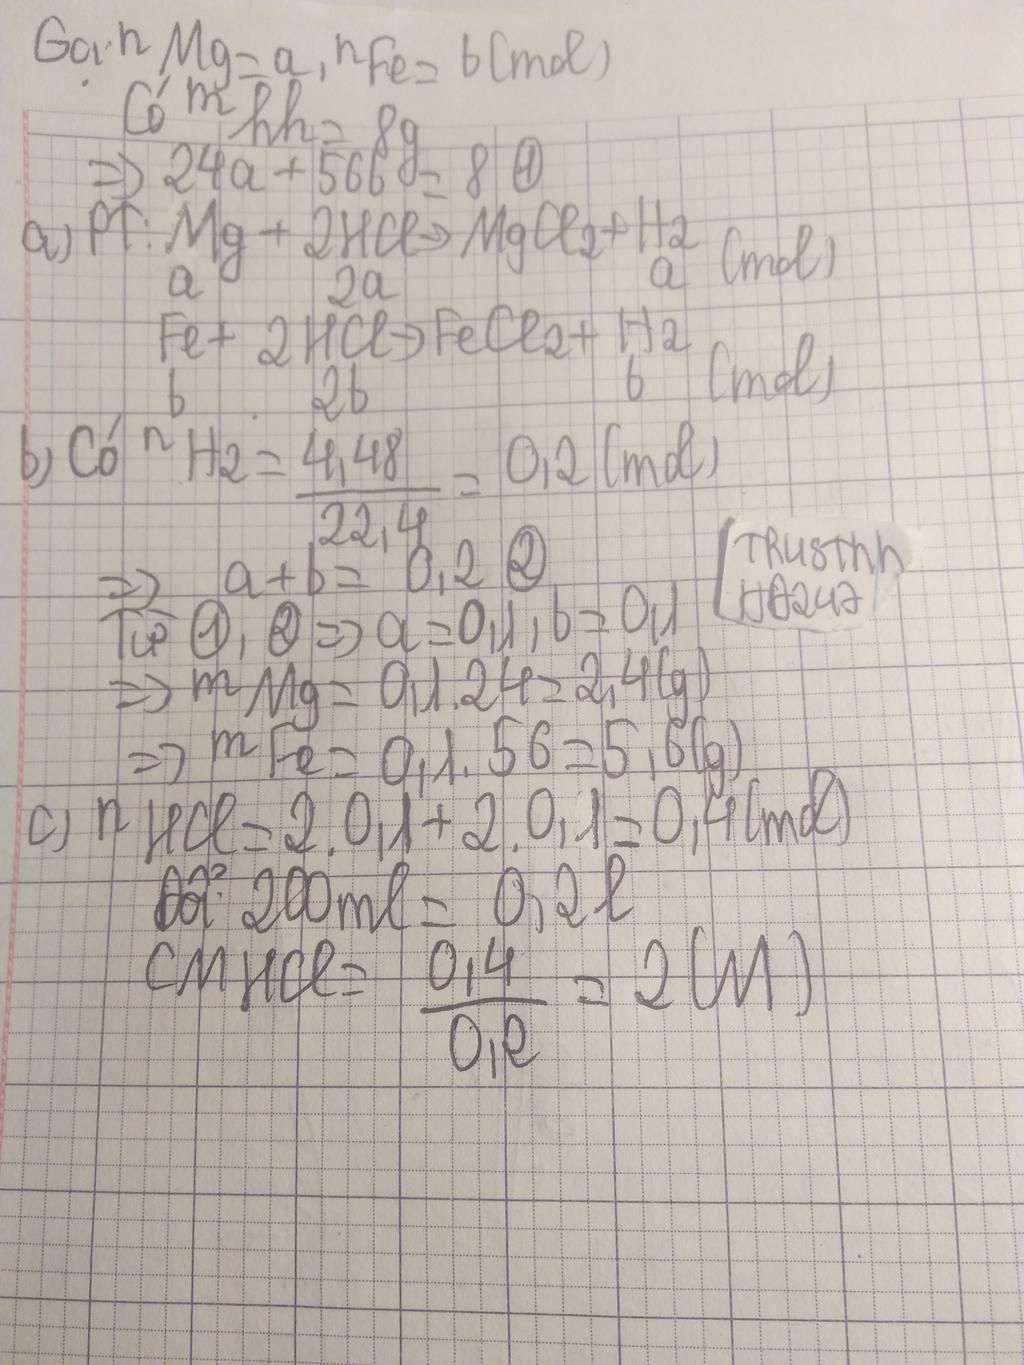 Gọi n Mg = a, n Fe = b (mol)
Có m hh = 8g
=> 24a + 56b = 8 ①
a) PT: Mg + 2HCl → MgCl2 + H2
a 2a a (mol)
Fe + 2HCl → FeCl2 + H2
b 2b b (mol)
b) Có n H2 = 4,48/22,4 = 0,2 (mol)
=> a + b = 0,2 ②
Từ ①, ② => a = 0,1, b = 0,1
TRUSThh
=> m Mg = 0,1.24 = 2,4(g)
=> m Fe = 0,1.56 = 5,6(g)
c) n HCl = 2.0,1 + 2.0,1 = 0,4 (mol)
200ml = 0,2l
CM HCl = 0,4/0,2 = 2 (M)